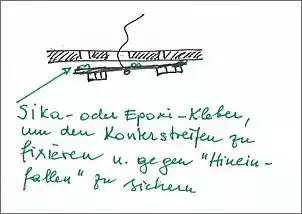 Sika- oder Epoxi-Kleber,
um den Konterstreifen zu
fixieren u. gegen "Hinein-
fallen" zu sichern